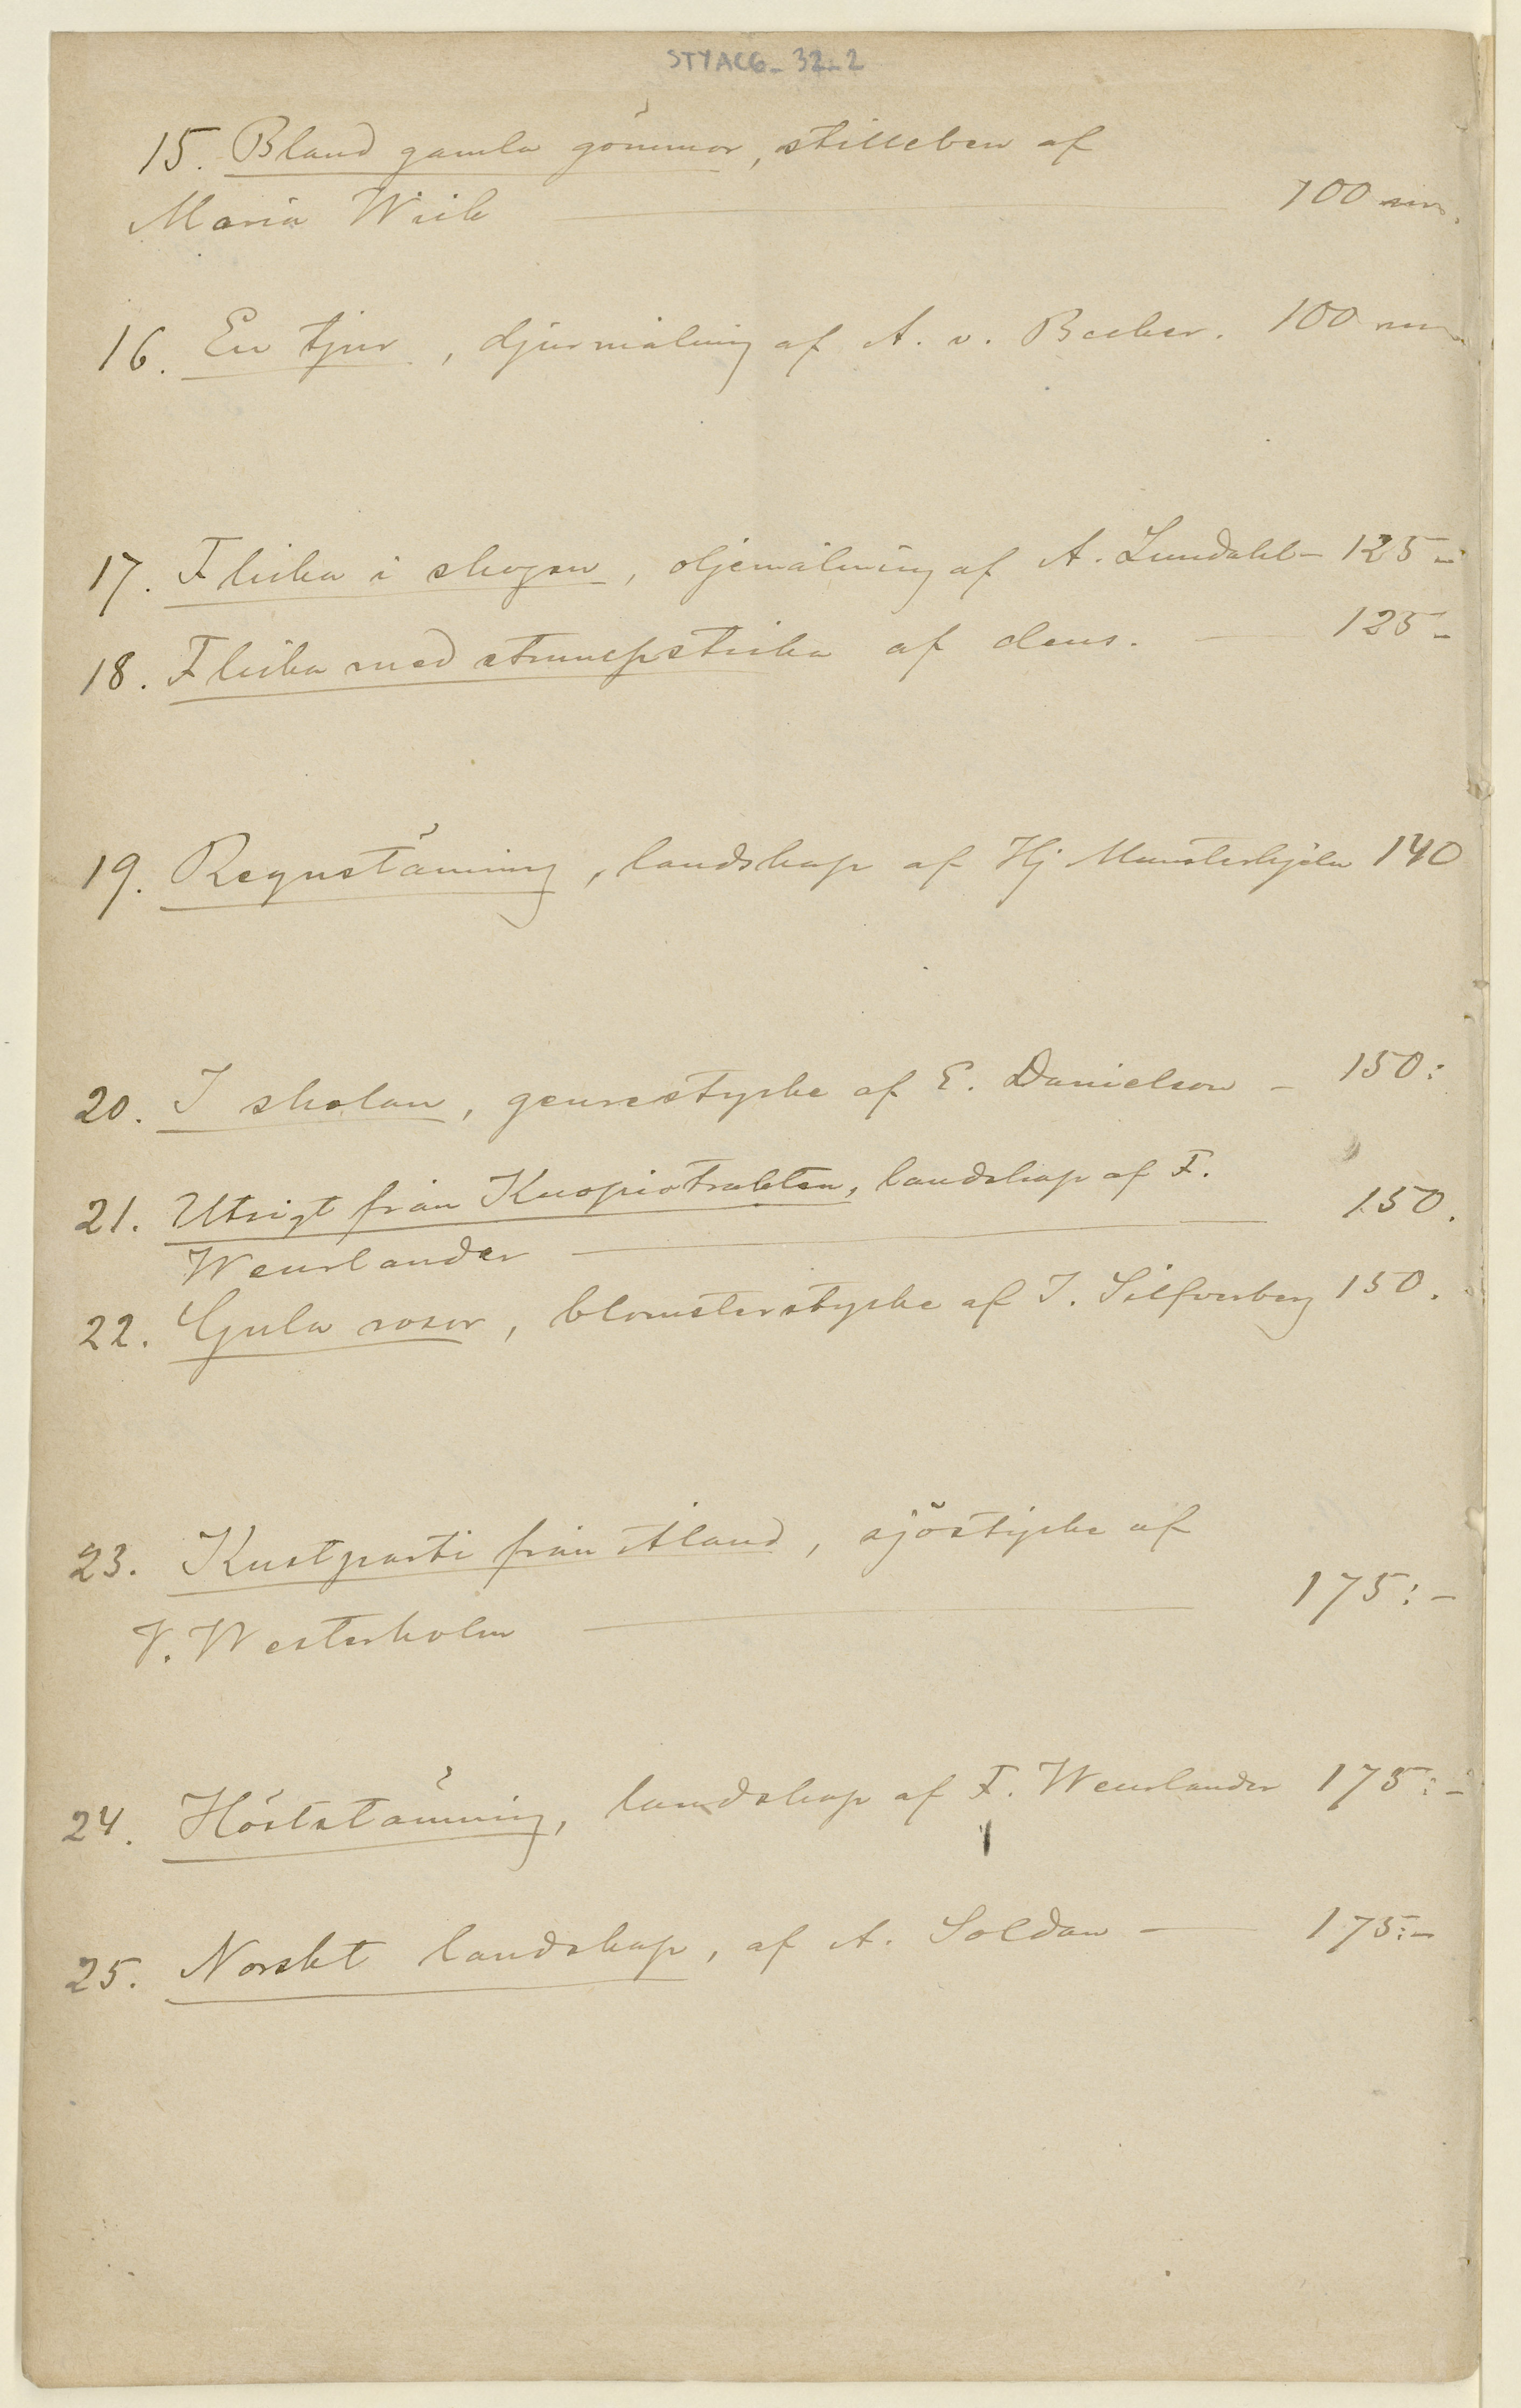 STYACG_32_2
15. Bland gamla gömmor, stilleben af
Maria Wiik 100 m.
16. En tjur, djurmålning af A. v. Becker. 100 m
17. Flicka i skogen, oljemålning af A. Lundahl – 125 –
18. Flicka med strumpsticka af dens. 125 –
19. Regnstämning, landskap af Hj Munsterhjelm 140
20. I skolan, genrestycke af E. Danielson – 150:
21. Utsigt från Kuopiotrakten, landskap af F.
Wenrlander 150.
22. Gula rosor, blomsterstycke af I. Silfverberg 150.
23. Kustparti från Åland, sjöstycke af
V. Westerholm 175: –
24. Höststämning, landskap af F. Wenrlander 175: –
25. Norskt landskap, af A. Soldan – 175: –